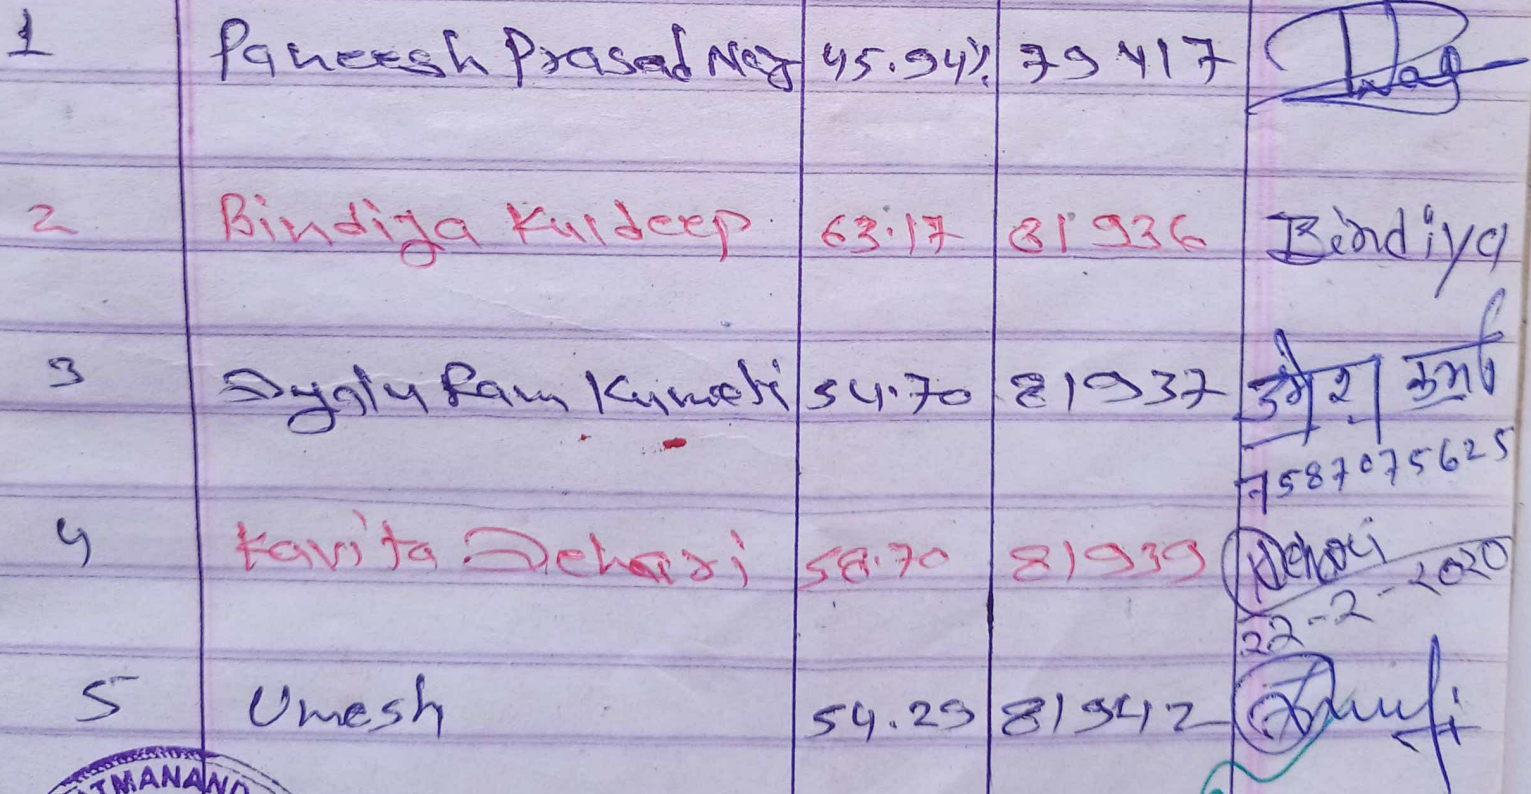 1 Paneesh Prasad Nag 45.94% 79417 Nag
2 Bindiya Kuldeep 63.17 81936 Bindiya
3 Dyalu Ram Kumeti 54.70 81937 उमेश
7587075625
4 Kavita Dehari 58.70 81939 Dehari
22-2-2020
5 Umesh 54.29 81942
ATMANAND